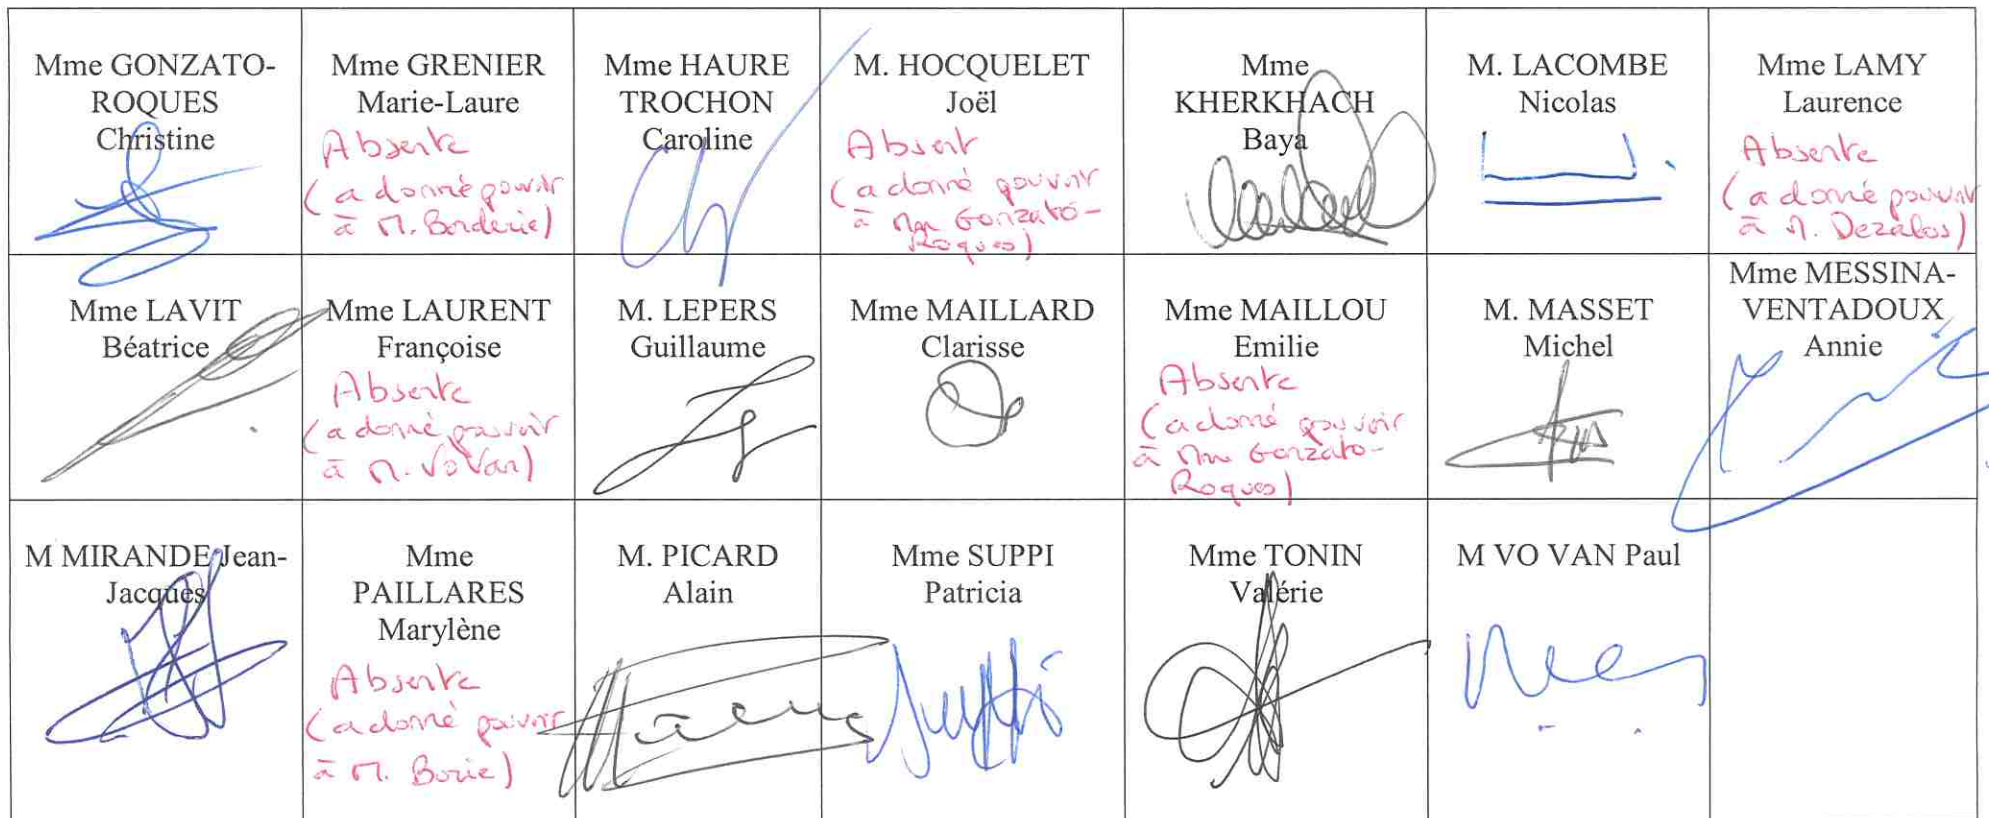 Mme GONZATO-
ROQUES
Christine
Mme GRENIER
Marie-Laure
Absente
(a donné pouvoir
à M. Borderie)
Mme HAURE
TROCHON
Caroline
M. HOCQUELET
Joël
Absent
(a donné pouvoir
à Mme Gonzato-
Roques)
Mme
KHERKHACH
Baya
M. LACOMBE
Nicolas
Mme LAMY
Laurence
Absente
(a donné pouvoir
à M. Dezalos)
Mme LAVIT
Béatrice
Mme LAURENT
Françoise
Absente
(a donné pouvoir
à M. Vo Van)
M. LEPERS
Guillaume
Mme MAILLARD
Clarisse
Mme MAILLOU
Emilie
Absente
(a donné pouvoir
à Mme Gonzato-
Roques)
M. MASSET
Michel
Mme MESSINA-
VENTADOUX
Annie
M MIRANDE Jean-
Jacques
Mme
PAILLARES
Marylène
Absente
(a donné pouvoir
à M. Borie)
M. PICARD
Alain
Mme SUPPI
Patricia
Mme TONIN
Valérie
M VO VAN Paul